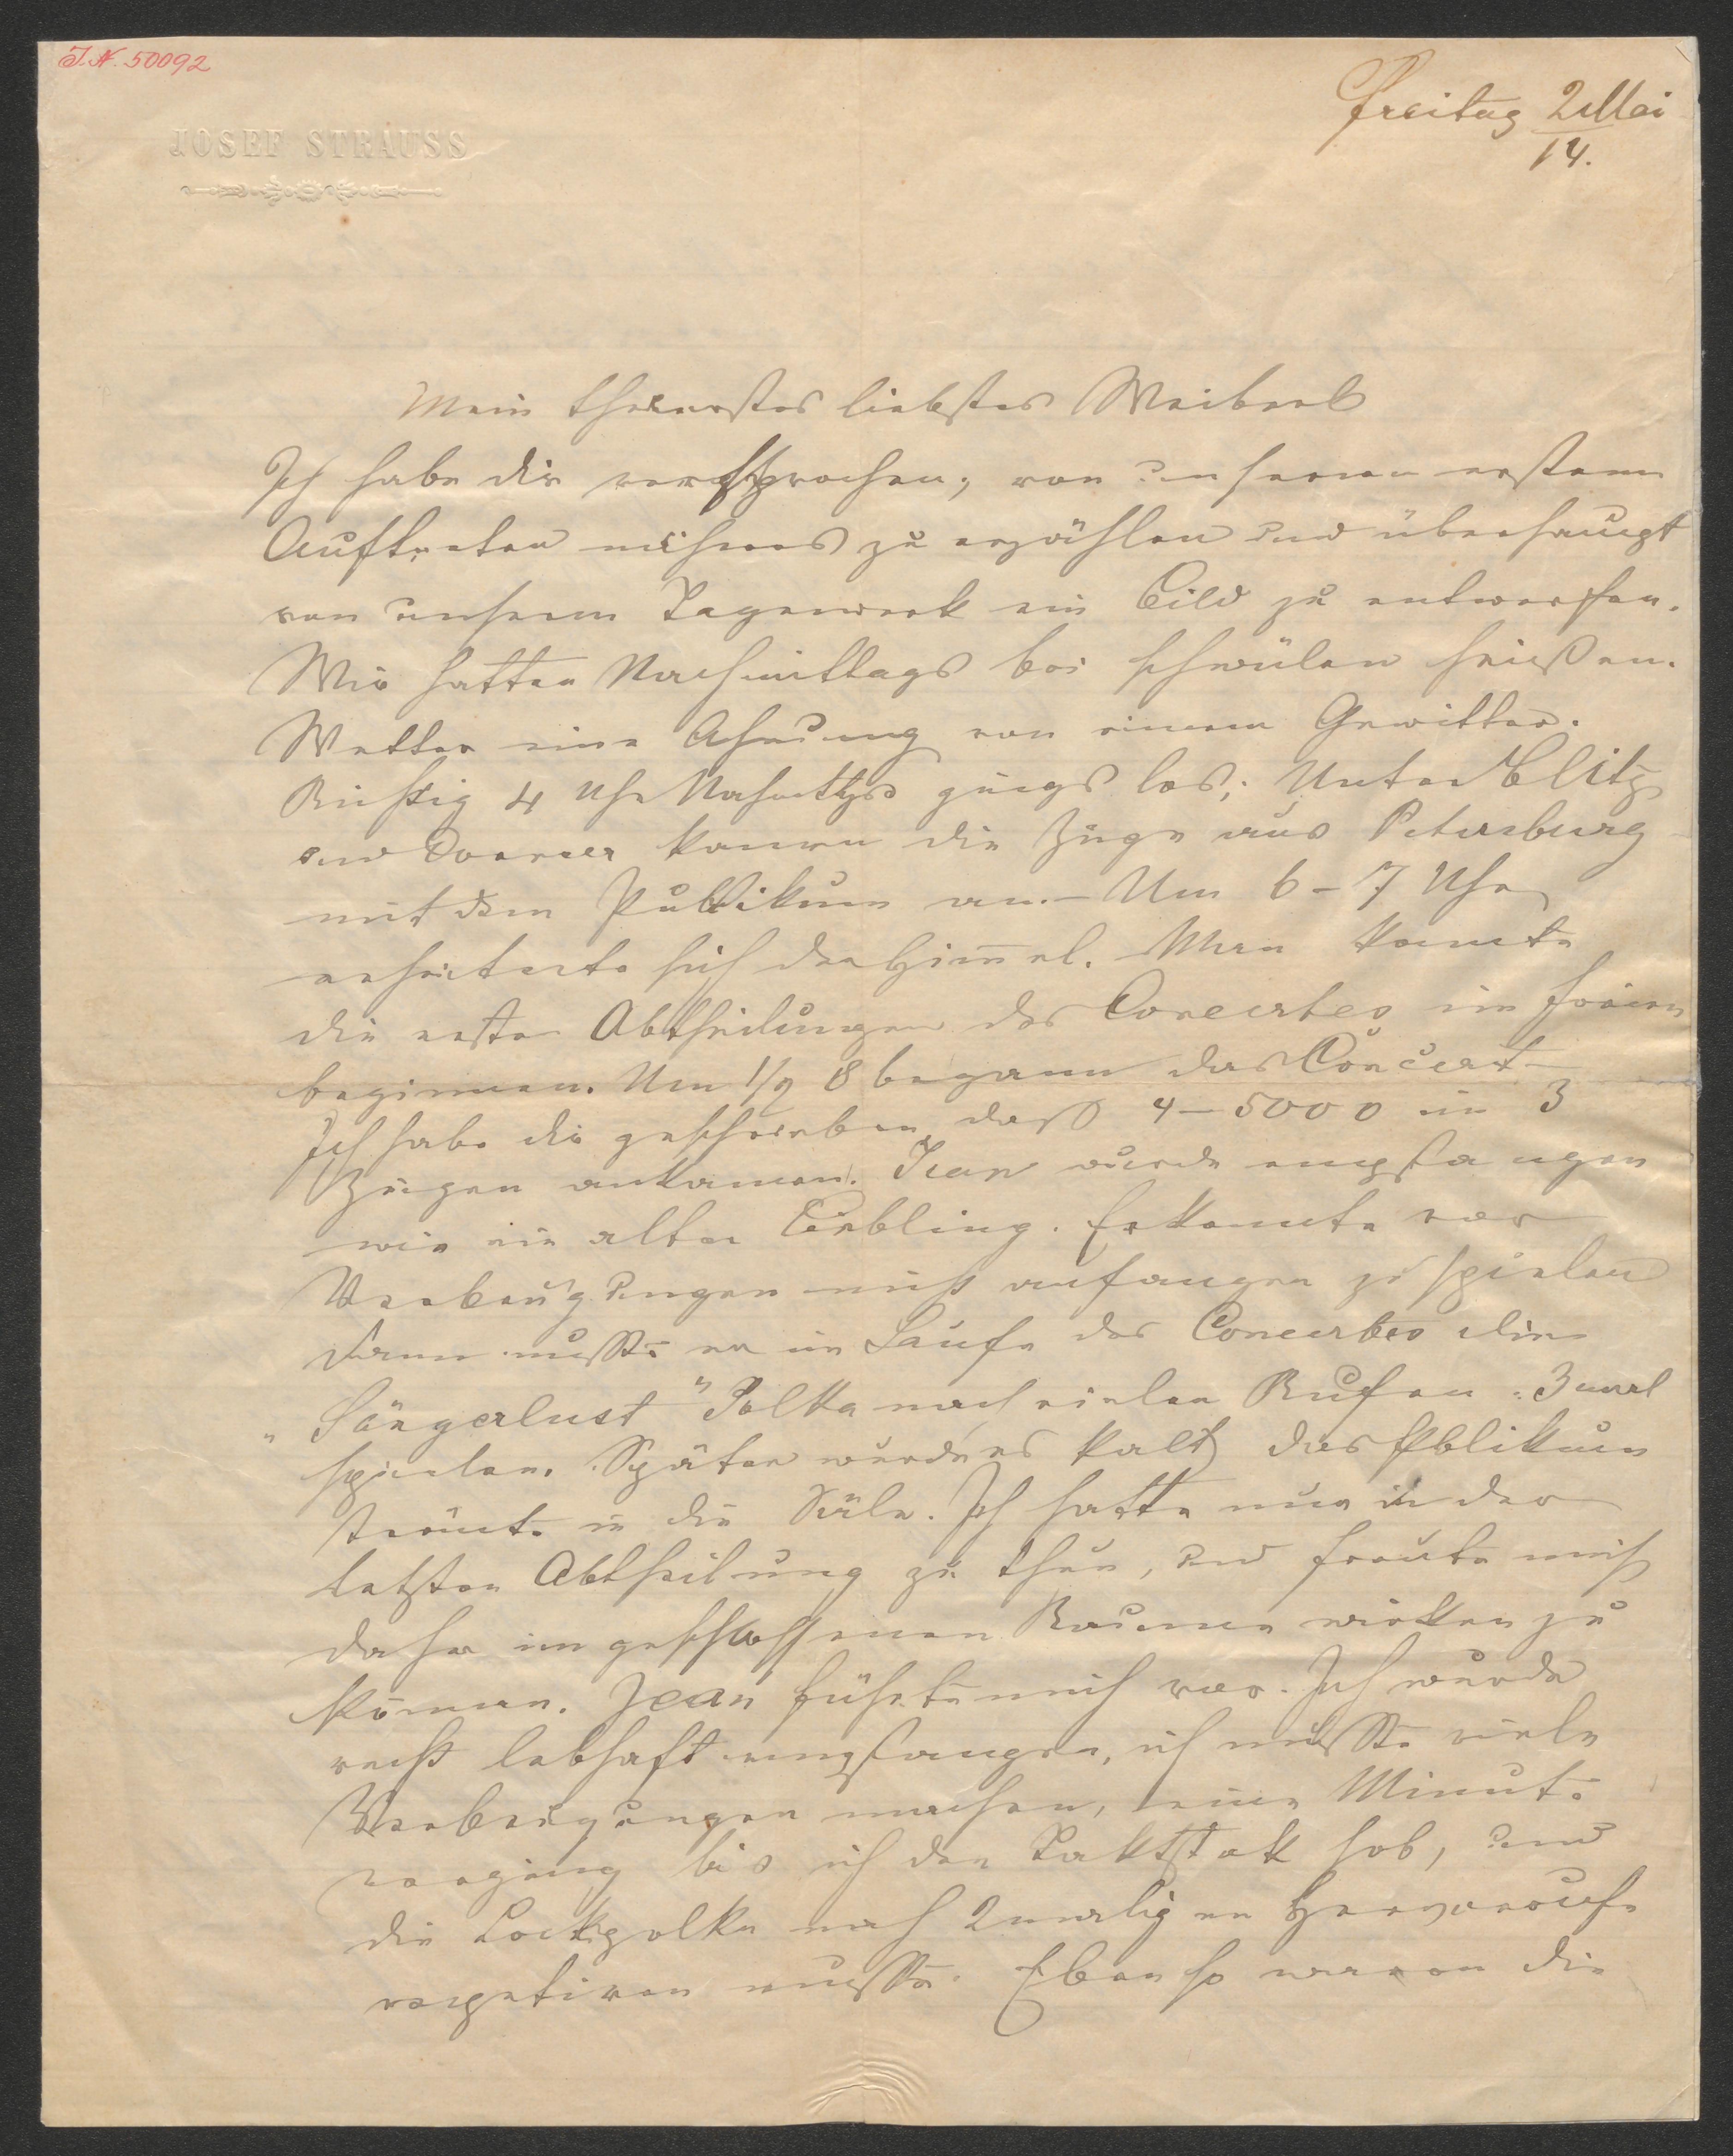 J.N. 50092
JOSEF STRAUSS
Freitag 2 Mai
14.
Mein theuerstes liebstes Weiberl
Ich habe dir versprochen, von unserem erstem
Auftreten näheres zu erzählen und überhaupt
von unserm Tagewerk ein Bild zu entwerfen.
Wir hatten Nachmittags bei schwülen heißen
Wetter eine Ahnung von einem Gewitter.
Richtig 4 Uhr Nachmttgs giengs los; Unter Blitz
und Donner kamen die Züge aus Petersburg
mit dem Publikum an. – Um 6 – 7 Uhr
erheiterte sich der Himmel. Man konnte
die erste Abtheilungen des Concertes im freien
beginnen. Um 1/2 8 begann das Concert
Ich habe dir geschrieben, daß 4 – 5000 in 3
Zügen ankamen. Jean wurde empfangen
wie ein alter Liebling. Er konnte vor
Verbeugungen nicht anfangen zu spielen
dann mußte er im Laufe des Concertes die
„Sängerlust" Polka nach vielen Rufen 3 mal
spielen. Später wurde es kalt, das Publikum
strömte in die Säle. Ich hatte nur in der
letzten Abtheilung zu thun, und freute mich
daher im geschlossenen Raume wirken zu
können. Jean führte mich vor. Ich wurde
recht lebhaft empfangen, ich mußte viele
Verbeugungen machen, eine Minute
verging bis ich den Taktstok hob, und
die Lockpolka nach 2 maligen Hervorrufe
repetiren mußte. Ebenso waren die